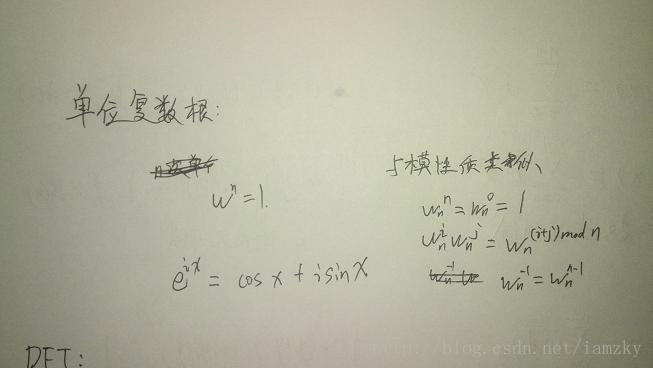 单位复数根:
n次单位
wⁿ=1.
e^{ix} = cos x + i sin x
与模性质类似、
w_n^n = w_n^0 = 1
w_n^i w_n^j = w_n^{(i+j) mod n}
w_n^{-1} = w_n^{n-1}
DFT:
http://blog.csdn.net/iamzky